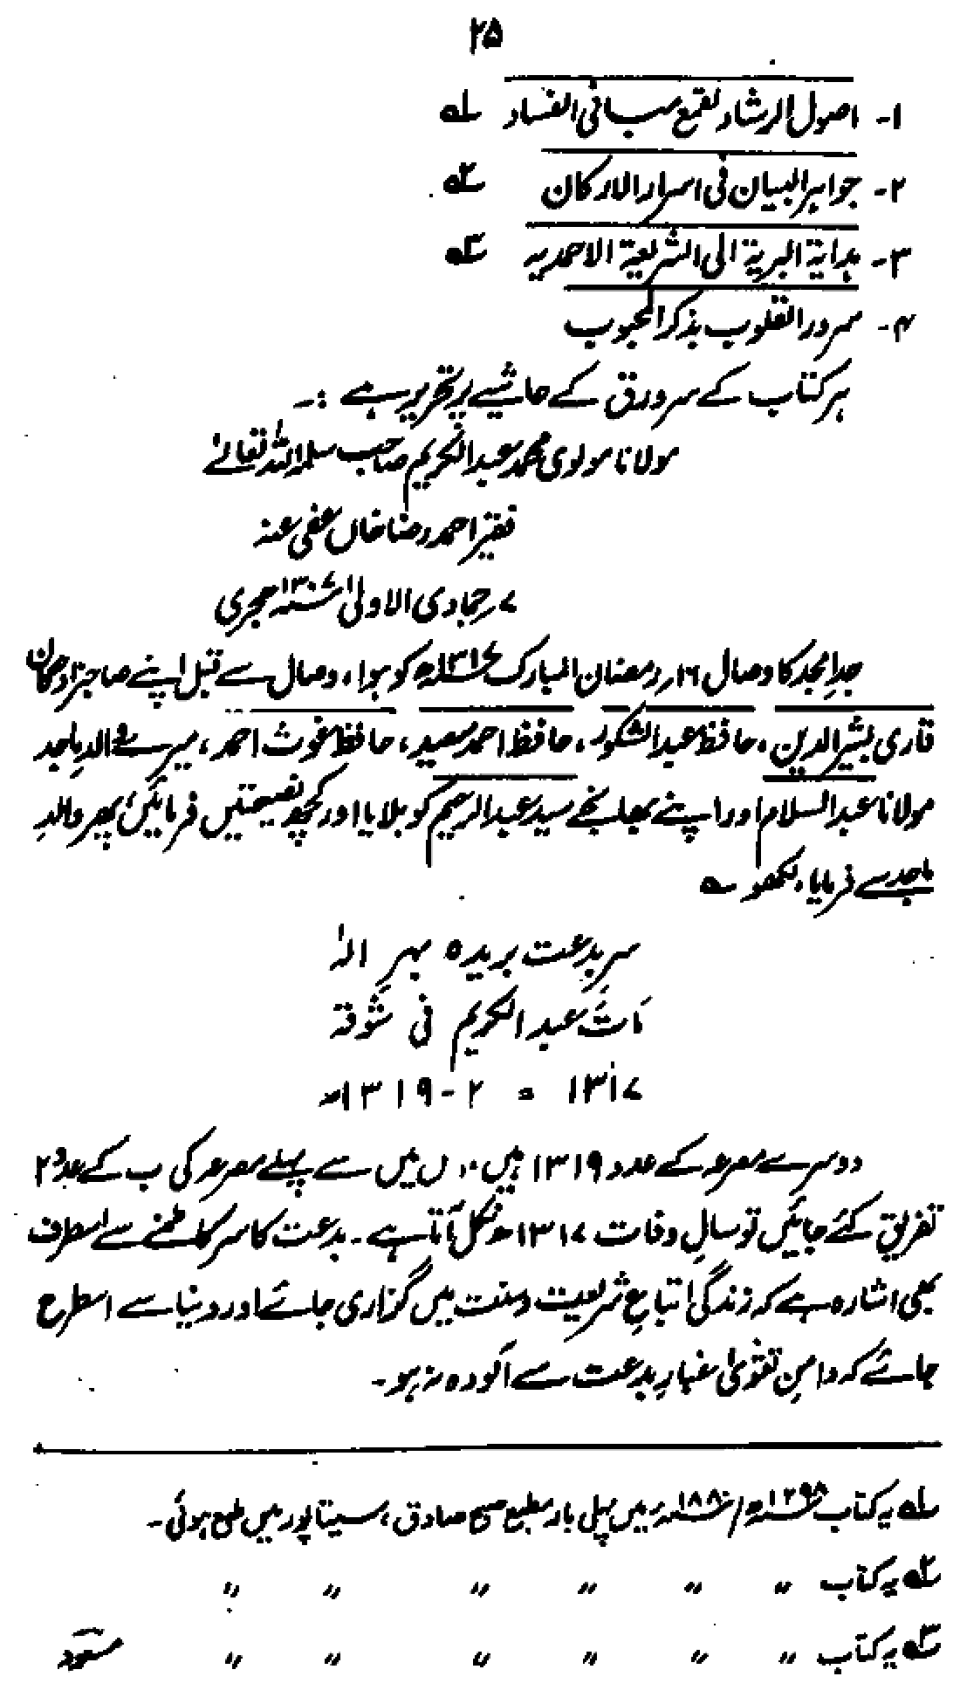 ۲۵
۱- اصول الرشاد لقمع مبانی الفساد ۱؎
۲- جواہر البیان فی اسرار الارکان ۲؎
۳- ہدایۃ البریۃ الی الشریعۃ الاحمدیہ ۳؎
۴- سرور القلوب بذکر المحبوب
ہر کتاب کے سرورق کے حاشیے پر تحریر ہے :۔
مولانا مولوی محمد عبدالکریم صاحب سلمہ اللہ تعالےٰ
فقیر احمد رضا خاں عفی عنہ
۷؍ جمادی الاولیٰ ۱۳۰۷ھ ہجری
جدِ امجد کا وصال ۱۶؍ رمضان المبارک ۱۳۱۷ھ کو ہوا، وصال سے قبل اپنے صاحبزادگان
قاری بشیر الدین، حافظ عبدالشکور، حافظ احمد سعید، حافظ غوث احمد، میرے والدِ ماجد
مولانا عبدالسلام اور اپنے بھانجے سید عبدالرحیم کو بلایا اور کچھ نصیحتیں فرمائیں، پھر والدِ
ماجد سے فرمایا، لکھو ؎
سرِ بدعت بریدہ بہرِ الٰہ
مَاتَ عبدالکریم فی شَوقہٖ
۱۳۱۷ = ۲ - ۱۳۱۹ھ
دوسرے مصرعہ کے عدد ۱۳۱۹ ہیں، اس میں سے پہلے مصرعہ کی ب کے عدد ۲
تفریق کئے جائیں تو سالِ وفات ۱۳۱۷ھ نکل آتا ہے۔ بدعت کا سر کاٹنے سے اسطرف
بھی اشارہ ہے کہ زندگی اتباعِ شریعت وسنت میں گزاری جائے اور دنیا سے اسطرح
جائے کہ دامنِ تقویٰ غبارِ بدعت سے آلودہ نہ ہو۔
۱؎ یہ کتاب ۱۲۹۸ھ/۱۸۸۰ء میں پہلی بار مطبع صبح صادق، سیتاپور میں طبع ہوئی۔
۲؎ یہ کتاب 〃 〃 〃 〃 〃 〃
۳؎ یہ کتاب 〃 〃 〃 〃 〃 〃 مسعود